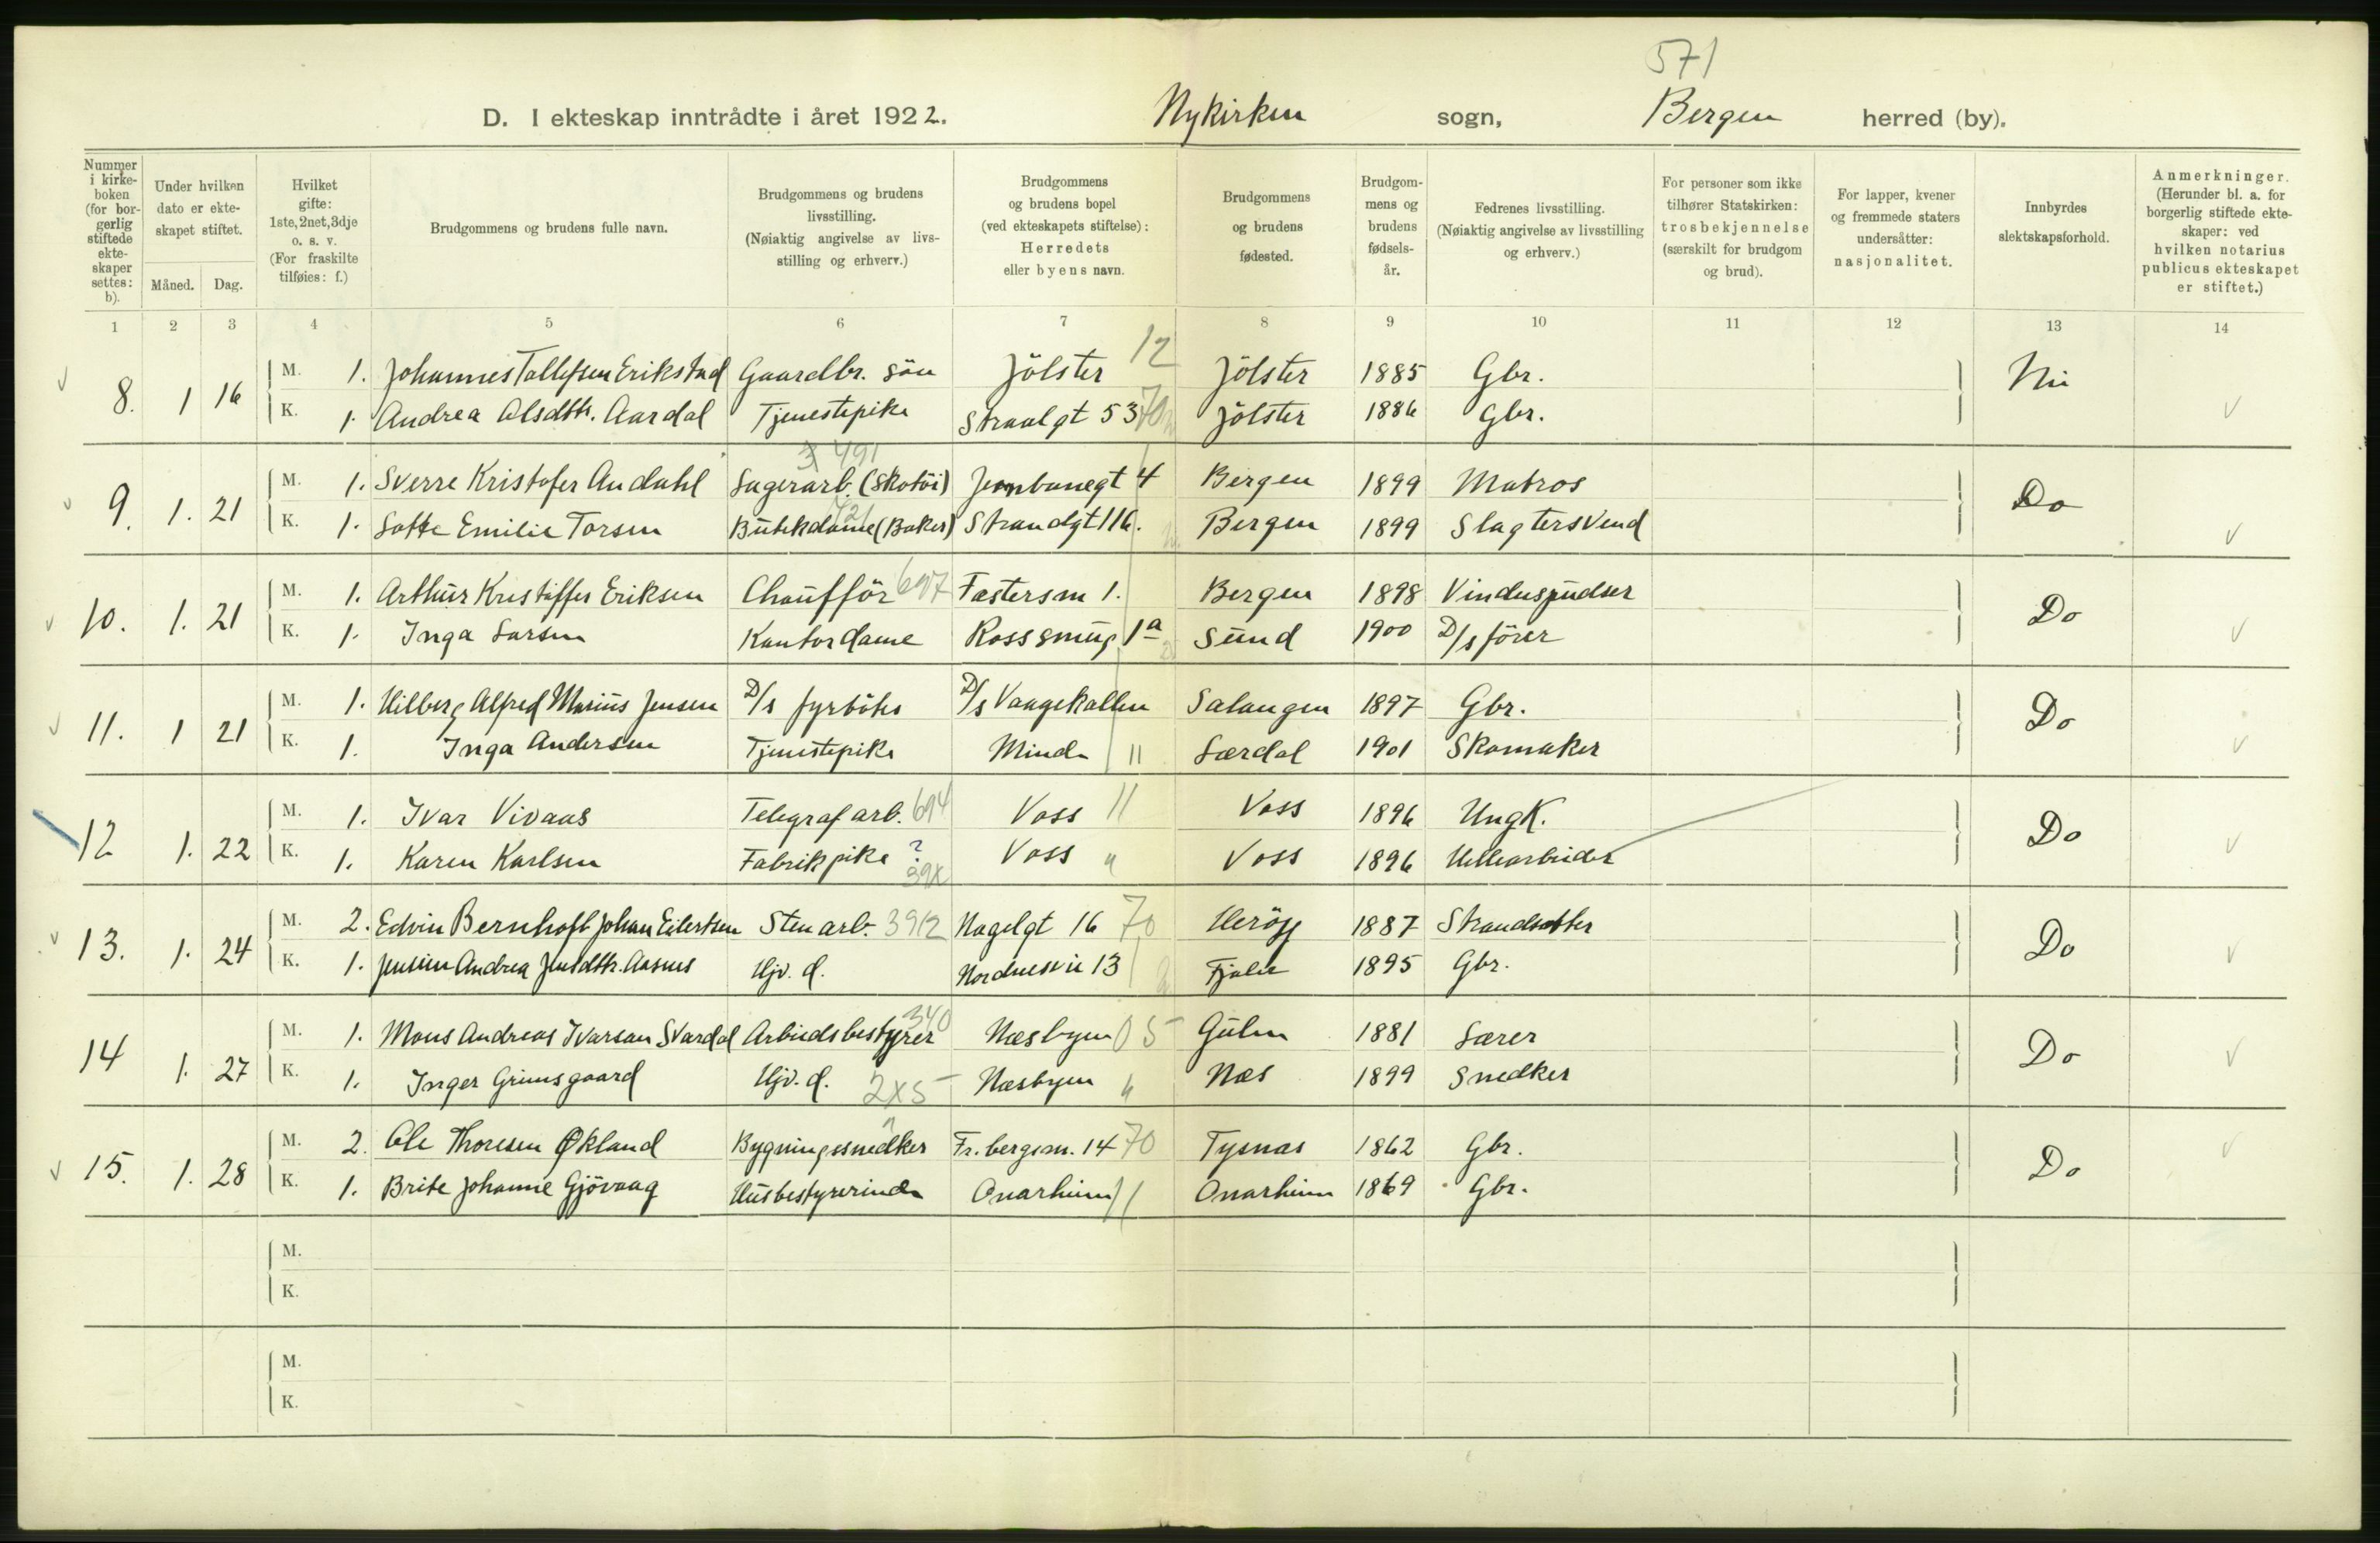 571
D. I ekteskap inntrådte i året 1922. Nykirken sogn, Bergen herred (by).
Nummer i kirke- boken (for bor- gerlig stiftede ekte- skaper settes: b).
Under hvilken dato er ekte- skapet stiftet.
Måned. Dag.
Hvilket gifte: 1ste, 2net, 3dje o. s. v. (For fraskilte tilføies: f.)
Brudgommens og brudens fulle navn.
Brudgommens og brudens livsstilling. (Nøiaktig angivelse av livs- stilling og erhverv.)
Brudgommens og brudens bopel (ved ekteskapets stiftelse): Herredets eller byens navn.
Brudgommens og brudens fødested.
Brudgom- mens og brudens fødsels- år.
Fedrenes livsstilling. (Nøiaktig angivelse av livsstilling og erhverv.)
For personer som ikke tilhører Statskirken: trosbekjennelse (særskilt for brudgom og brud).
For lapper, kvener og fremmede staters undersåtter: nasjonalitet.
Innbyrdes slektskapsforhold.
Anmerkninger. (Herunder bl. a. for borgerlig stiftede ekte- skaper: ved hvilken notarius publicus ekteskapet er stiftet.)
1 2 3 4 5 6 7 8 9 10 11 12 13 14
8. 1 16 M. 1. Johannes Tollefsen Erikstad Gaardbr. sön Jölster 12 Jölster 1885 Gbr. Nei
K. 1. Andrea Olsdttr. Aardal Tjenestepike Straalgt 53 70 Jölster 1886 Gbr.
491
9. 1. 21 M. 1. Sverre Kristofer Andahl Lagerarb. (Skotöi) Jernbanegt 4 Bergen 1899 Matros Do
K. 1. Lotte Emilie Torsen Butikdame (Baker) Strandgt 116. Bergen 1899 Slagtersvend
10. 1. 21 M. 1. Arthur Kristoffer Eriksen Chaufför 697 Fastersm 1. Bergen 1898 Vinduspudser Do
K. 1. Inga Larsen Kontordame Rossesmug 1a Sund 1900 D/s förer
11. 1 21 M. 1. Hilberg Alfred Marius Jensen D/s fyrböter D/s Vaagekallen Salangen 1897 Gbr. Do
K. 1. Inga Andersen Tjenestepike Minde 11 Lærdal 1901 Skomaker
12 1. 22 M. 1. Ivar Vivaas Telegrafarb. 694 Voss 11 Voss 1896 Ungk. Do
K. 1. Karen Karlsen Fabrikpike ? 39x Voss " Voss 1896 Hellearbeider
13. 1. 24 M. 2. Edvin Bernhoft Johan Eilertsen Stenarb. 3912 Nagelgt 16 70 Heröy 1887 Strandsitter Do
K. 1. Jensine Andrea Jensdttr. Aasnes Hjv. d. Nordnesvei 13 Fjaler 1895 Gbr.
340
14 1. 27 M. 1. Mons Andreas Ivarson Svardal Arbeidsbestyrer Næsbyen 05 Gulen 1881 Lærer Do
K. 1. Inger Grimsgaard Hjv. d. 2x5 Næsbyen " Næs 1899 Snedker
15. 1. 28 M. 2. Ole Thoresen Økland Bygningssnedker Fr. bergsm. 14 70 Tysnæs 1862 Gbr. Do
K. 1. Brite Johanne Gjövaag Husbestyrerinde Onarheim 11 Onarheim 1869 Gbr.
M.
K.
M.
K.